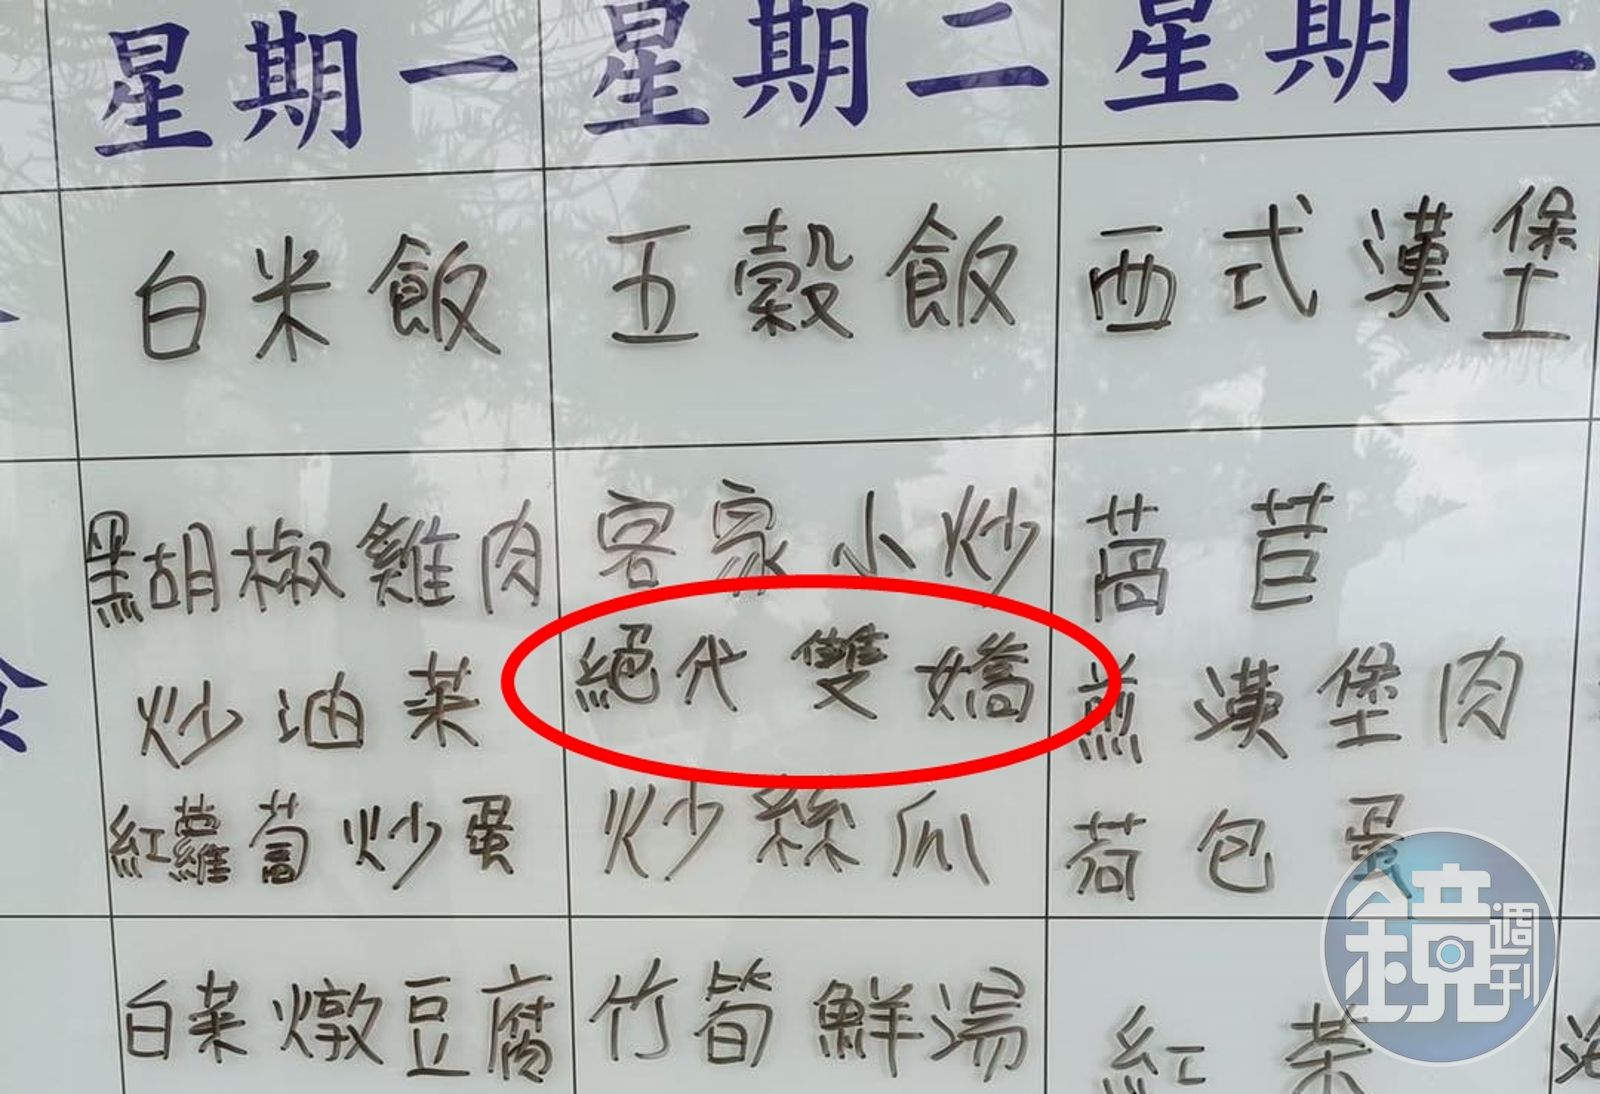 星期一
白米飯
黑胡椒雞肉
炒油菜
紅蘿蔔炒蛋
白菜燉豆腐
星期二
五穀飯
客家小炒
絕代雙嬌
炒絲瓜
竹筍鮮湯
星期三
西式漢堡
萵苣
煎漢堡肉
荷包蛋
紅茶
鏡週刊